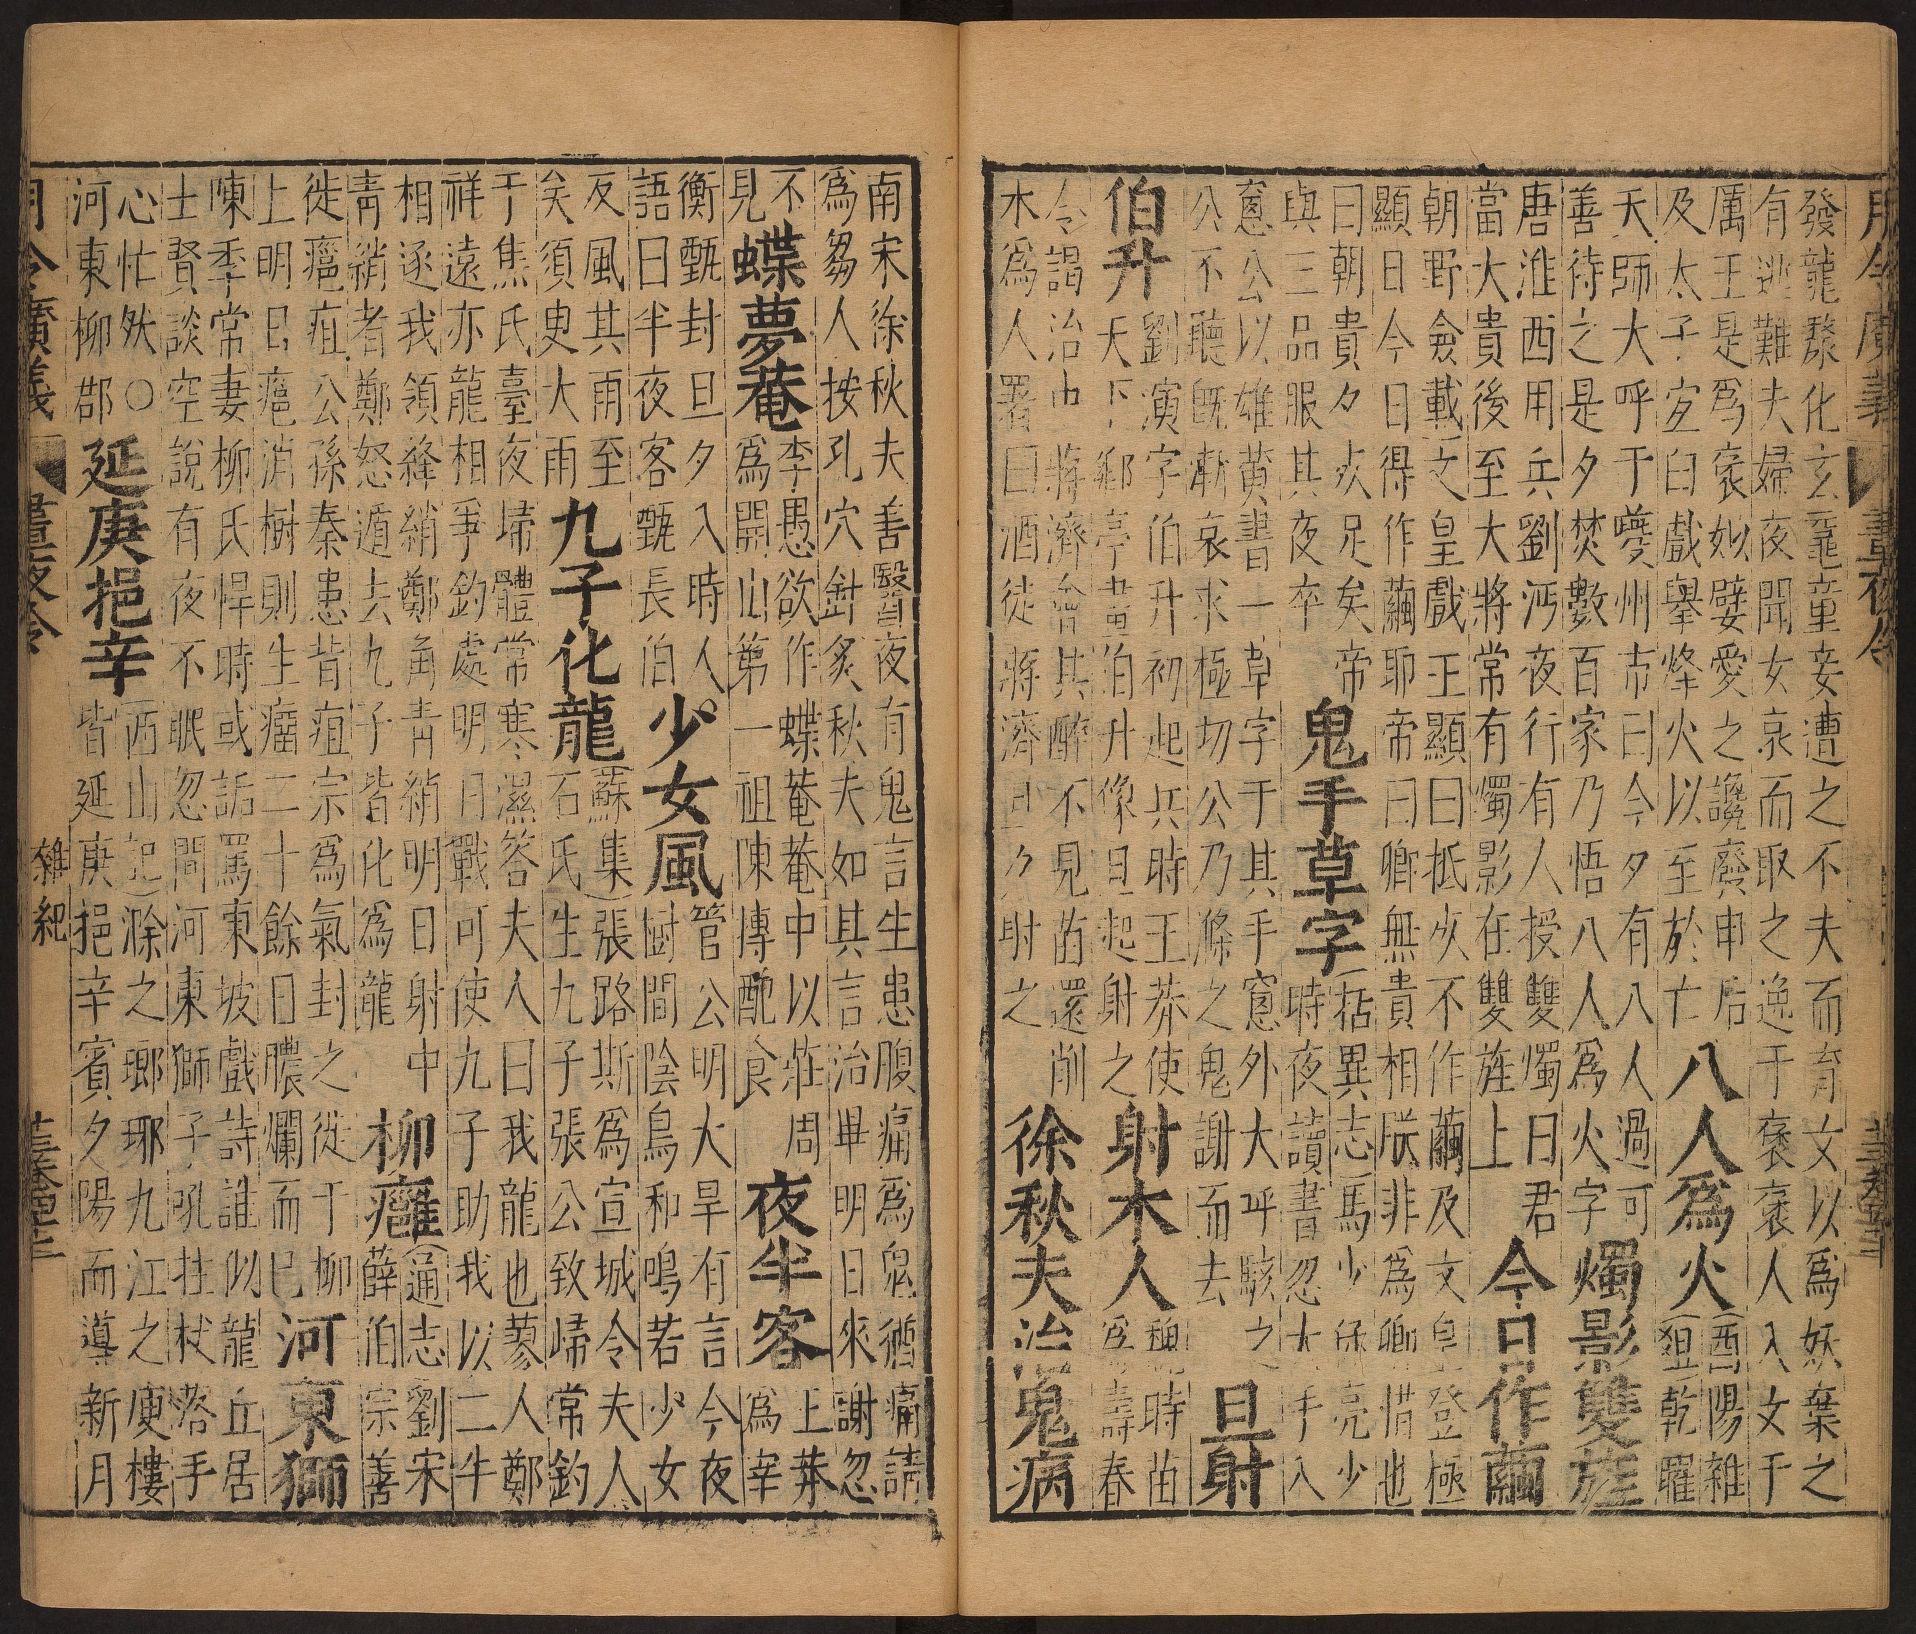 月令廣義 晝夜令
發龍漦化玄黿童妾遭之不夫而育文以爲妖棄之
有逃難夫婦夜聞女哀而取之逸于褒褒人入女于
厲王是爲褒姒嬖愛之讒廢申后
及太子宜臼戲舉烽火以至於亡
八人爲火
酉陽雜
俎乾羅
天師大呼于夔州市曰今夕有八人過可
善待之是夕焚數百家乃悟八人爲火字
燭影雙旌
唐淮西用兵劉沔夜行有人授雙燭曰君
當大貴後至大將常有燭影在雙旌上
今日作繭
朝野僉載文皇戲王顯曰抵老不作繭及文皇登極
顯曰今日得作繭耶帝曰卿無貴相朕非爲卿惜也
曰朝貴夕死足矣帝
與三品服其夜卒
鬼手草字
括異志馬少保亮少
時夜讀書忽大手入
窻公以雄黄書一草字于其手窻外大呼駭之
公不聽既漸哀求極切公乃滌之鬼謝而去
旦射
伯升
劉演字伯升初起兵時王莽使
天下郷亭畫伯升像旦起射之
射木人
魏時苗
爲壽春
令謁治中蔣濟會其醉不見苗還削
木爲人署曰酒徒蔣濟旦夕射之
徐秋夫治鬼病
南宋徐秋夫善醫夜有鬼言生患腹痛爲鬼猶痛請
爲芻人按孔穴針炙秋夫如其言治畢明日來謝忽
不
見
蝶夢菴
李愚欲作蝶菴菴中以莊周
爲開山第一祖陳摶配食
夜半客
上莽
爲宰
衡甄封旦夕入時人
語曰半夜客甄長伯
少女風
管公明大旱有言今夜
樹間陰鳥和鳴若少女
反風其雨至
矣須臾大雨
九子化龍
蘇集張路斯爲宣城令夫人
石氏生九子張公致歸常釣
于焦氏臺夜歸體常寒濕答夫人曰我龍也蓼人鄭
祥遠亦龍相爭釣處明日戰可使九子助我以二牛
相逐我領絳綃鄭角青綃明日射中
青綃者鄭怒遁去九子皆化爲龍
柳癰
通志劉宋
薛伯宗善
徙癰疽公孫秦患背疽宗爲氣封之徙于柳
上明日癰消樹則生瘤二十餘日膿爛而已
河東獅
陳季常妻柳氏悍時或詬罵東坡戲詩誰似龍丘居
士賢談空說有夜不眠忽聞河東獅子吼拄杖落手
心忙然○
河東柳郡
延庚挹辛
西山起滁之瑯琊九江之庾樓
皆延庚挹辛賓夕陽而導新月
月令廣義 晝夜令 雜紀